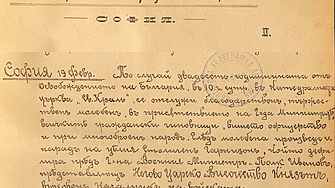 СОФИЯ.
II.
София 19 февр. По случай двадесеть-годишнината отъ
Освобождението на България, въ 10 ч. сут. въ Катедралната
църква „Св. Краль“, се отслужи благодарственъ, тържес-
твенъ молебенъ, въ присѫтствието на Г-да Министри,
всичкитѣ граждански чиновници, висше офицерство
и при многоброенъ народъ. Следъ молебена произведе се
парадъ на
гарнизонъ, който дефи-
лира прѣдъ Г-на Военний Министръ Полк. Ивановъ,
прѣдставлющъ Негово Царско Височество Князътъ,